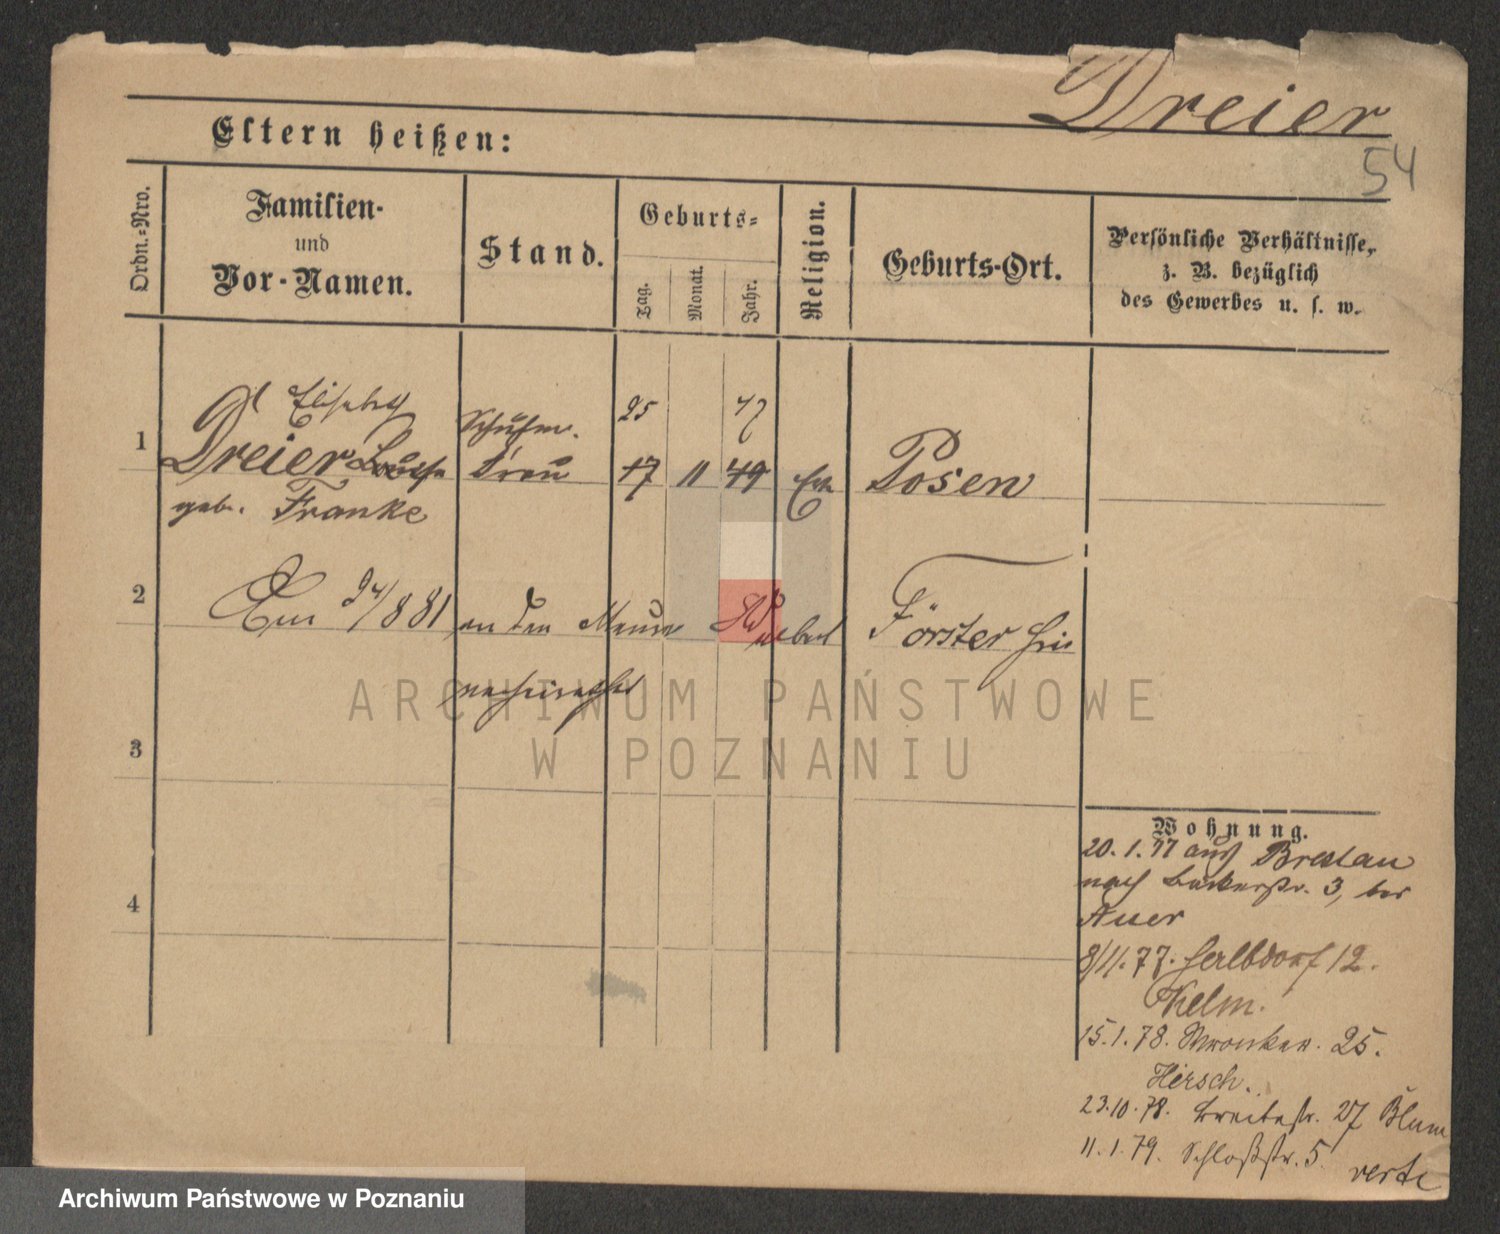 Dreier
54
Eltern heißen:
Ordn.-Nro.
Familien-
und
Vor-Namen.
Stand.
Geburts-
Tag.
Monat.
Jahr.
Religion.
Geburts-Ort.
Persönliche Verhältnisse,
z. B. bezüglich
des Gewerbes u. s. w.
Elisabeth
25
47
Schuhm.
1
Dreier Louise
Frau
17 11 49
Posen
geb. Franke
2
24/8 81 an den Maurer
Förster
3
4
Wohnung.
20.1.77 aus Breslau
nach Bäckerstr. 3, bei
Auer
8/11.77. Halbdorf 12.
15.1.78. Wronker. 25.
Hirsch.
23.10.78. Breitestr. 27 Blum
11.1.79. Schloßstr. 5.
verte
ARCHIWUM PAŃSTWOWE
W POZNANIU
Archiwum Państwowe w Poznaniu